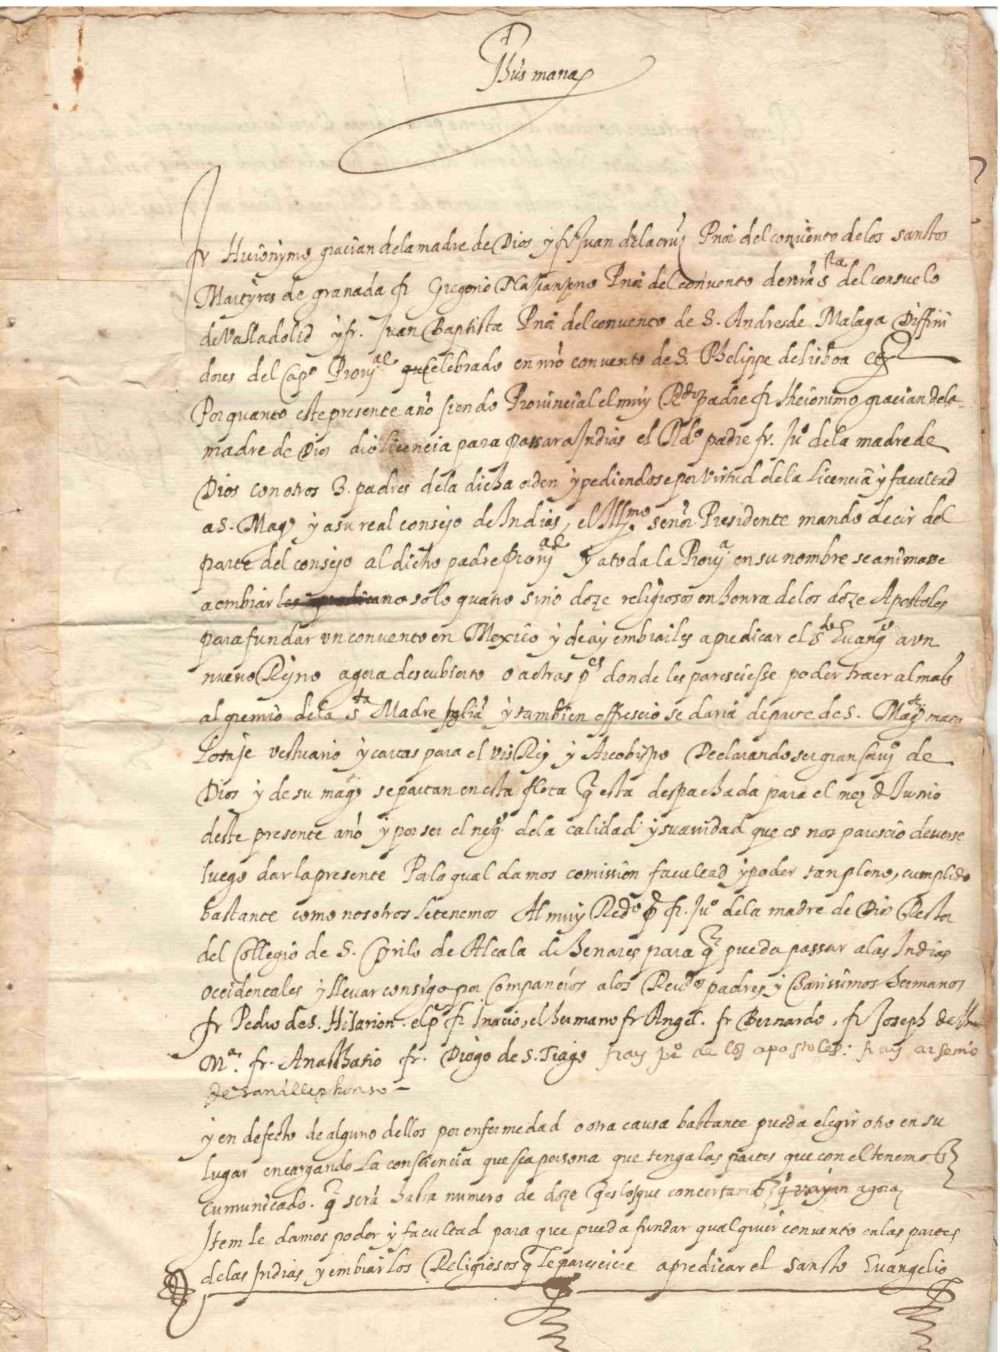 Jhus maria
fr Hieronymo gracian dela madre de Dios y fr Juan dela cruz Prior del convento de los sanctos
Martyres de granada fr Gregorio Nazianzeno Prior del convento de nra Sra del consuelo
de Valladolid y fr. Juan Baptista Prior del convento de S. Andres de Malaga Diffini
dores del Capo Proval celebrado en nro convento de S. Phelippe de lisboa
Por quanto este presente año siendo Provincial el muy Rdo padre fr Hieronimo gracian dela
madre de Dios dio licencia para passar a Indias el Rdo padre fr. Juo dela madre de
Dios con otros 3. padres dela dicha orden y pediendose por virtud dela licencia y facultad
a S. Magd y a su real consejo de Indias, el Illmo señor Presidente mando decir de
parte del consejo al dicho padre Proval y a toda la Prova en su nombre se animasse
a embiar no solo quatro sino doze religiosos en honra delos doze Apostoles
para fundar un convento en Mexico y de ay embiarles a predicar el Sto Evango a un
nuevo Reyno agora descubierto o a otras pes donde les paresciesse poder traer almas
al gremio dela Sta Madre Iglia y tambien offrescio se daria de parte de S. Magd mata
lotaje vestuario y cartas para el VisRey y Arcobispo Declarando ser gran servo de
Dios y de su magd se partan en esta flota q esta despachada para el mez de Junio
deste presente año y por ser el nego dela calidad y suavidad que es nos parescio deverse
luego dar la presente Pa la qual damos comission facultad y poder tan pleno, cumplido
bastante como nosotros le tenemos Al muy Rdo pe fr. Juo dela madre de Dios Rector
del Collegio de S. Cyrilo de Alcala de henares para q pueda passar alas Indias
occidentales y llevar consigo por compañeros a los Revdos padres y Carissimos hermanos
fr Pedro de S. Hilarion. el pe fr Inacio, el hermano fr Angel. fr Bernardo, fr Joseph de Jhus
Ma. fr. Anasthasio fr. Diogo de S. Tiago fray juo de los apostoles: fray arsenio
de san illephonso –
y en defecto de alguno dellos por enfermedad o otra causa bastante pueda elegir otro en su
lugar encargando la consciencia que sea persona que tenga las partes que con el tenemos
cumunicado. q será hasta numero de doze q es los que concertamos q vayan agora
Item le damos poder y facultad para que pueda fundar qualquier convento en las partes
delas Indias y embiar los Religiosos q le paresciere a predicar el sancto Evangelio